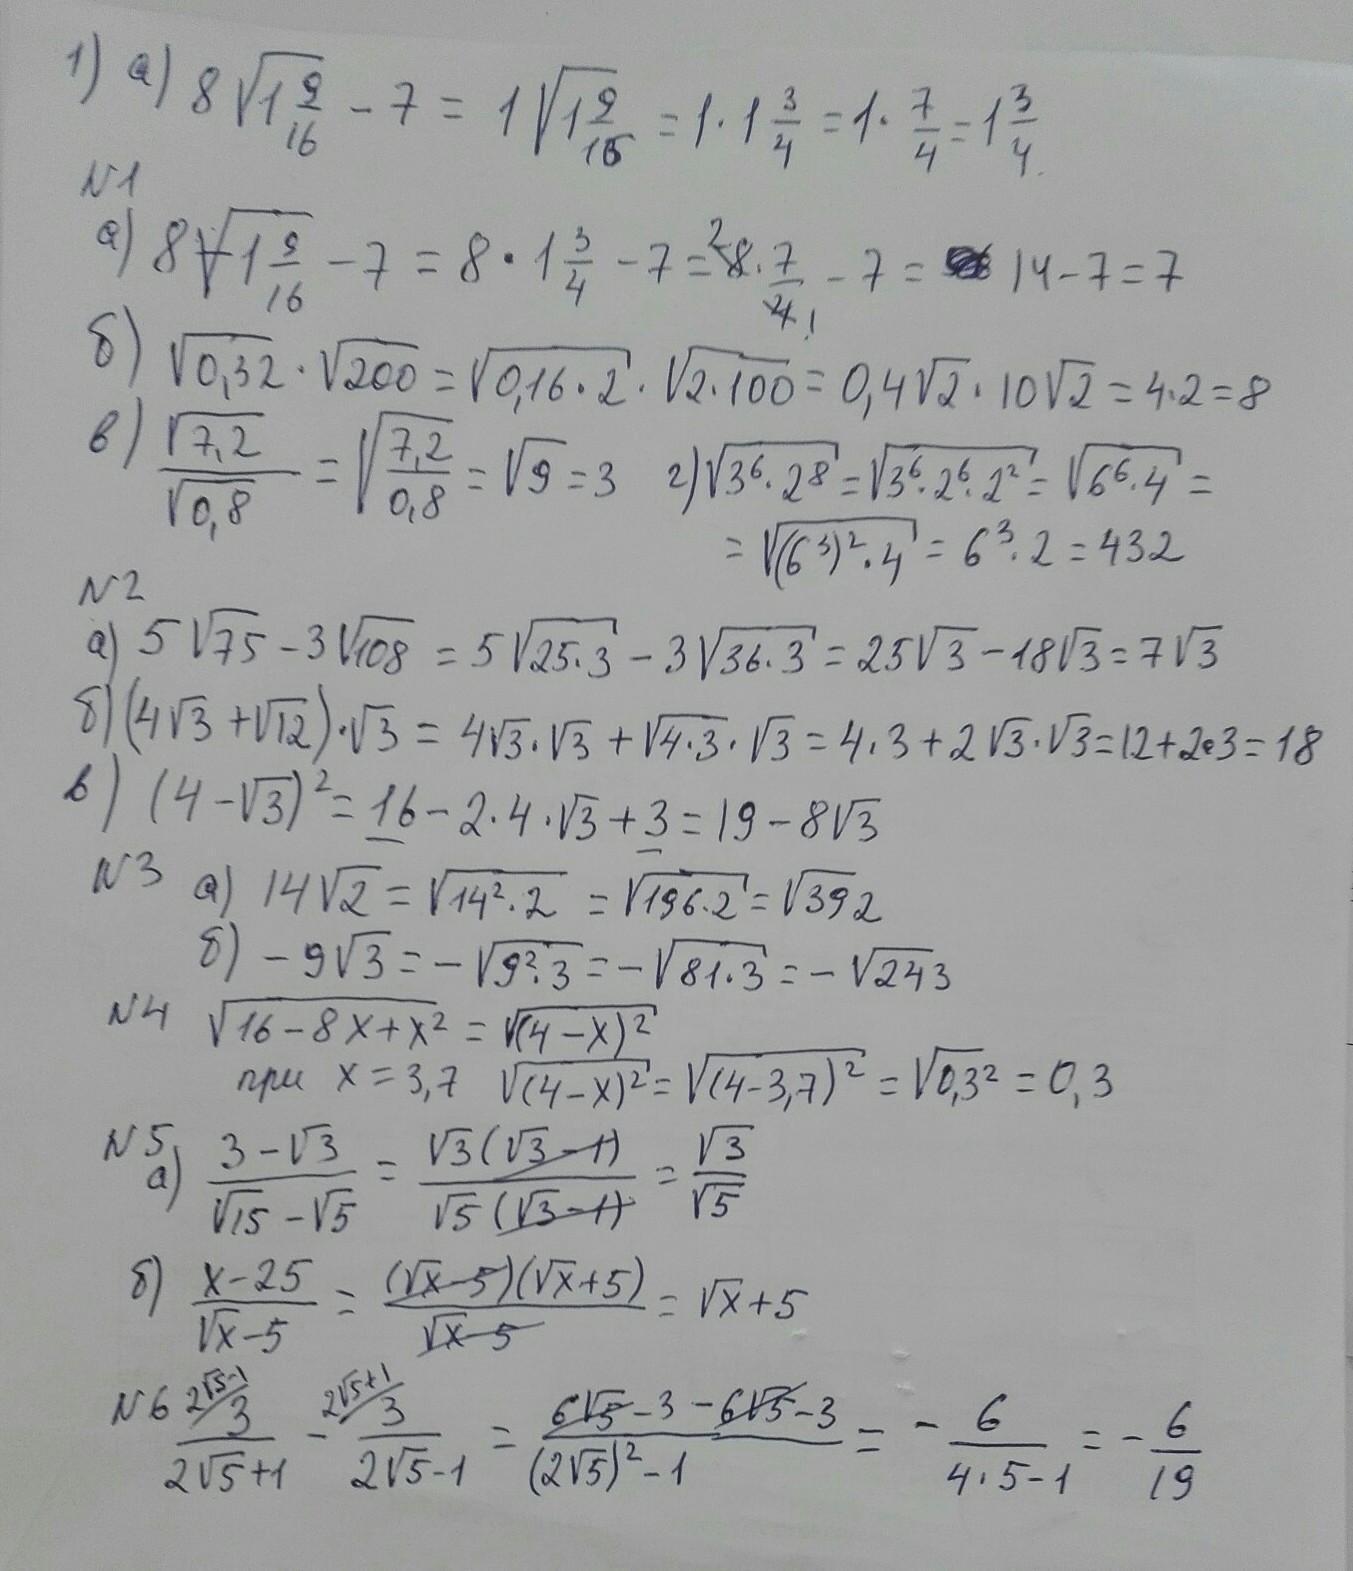 1) а) 8√(1 9/16) - 7 = 1√(1 9/16) = 1·1 3/4 = 1· 7/4 = 1 3/4.
N1
а) 8√(1 9/16) - 7 = 8·1 3/4 - 7 = 8·7/4 - 7 = 14 - 7 = 7
б) √0,32 · √200 = √(0,16·2) · √(2·100) = 0,4√2 · 10√2 = 4·2 = 8
в) √7,2/√0,8 = √(7,2/0,8) = √9 = 3 г) √(3⁶·2⁸) = √(3⁶·2⁶·2²) = √(6⁶·4) =
= √((6³)²·4) = 6³·2 = 432
N2
а) 5√75 - 3√108 = 5√(25·3) - 3√(36·3) = 25√3 - 18√3 = 7√3
б) (4√3 + √12)·√3 = 4√3·√3 + √(4·3)·√3 = 4·3 + 2√3·√3 = 12 + 2·3 = 18
в) (4 - √3)² = 16 - 2·4·√3 + 3 = 19 - 8√3
N3 а) 14√2 = √(14²·2) = √(196·2) = √392
б) -9√3 = -√(9²·3) = -√(81·3) = -√243
N4 √(16 - 8x + x²) = √((4 - x)²)
при x = 3,7 √((4 - x)²) = √((4 - 3,7)²) = √(0,3²) = 0,3
N5
а) (3 - √3)/(√15 - √5) = √3(√3 - 1)/(√5(√3 - 1)) = √3/√5
б) (x - 25)/(√x - 5) = (√x - 5)(√x + 5)/(√x - 5) = √x + 5
N6 2√5-1/ 3/(2√5+1) - 2√5+1/ 3/(2√5-1) = (6√5 - 3 - 6√5 - 3)/((2√5)² - 1) = - 6/(4·5-1) = - 6/19